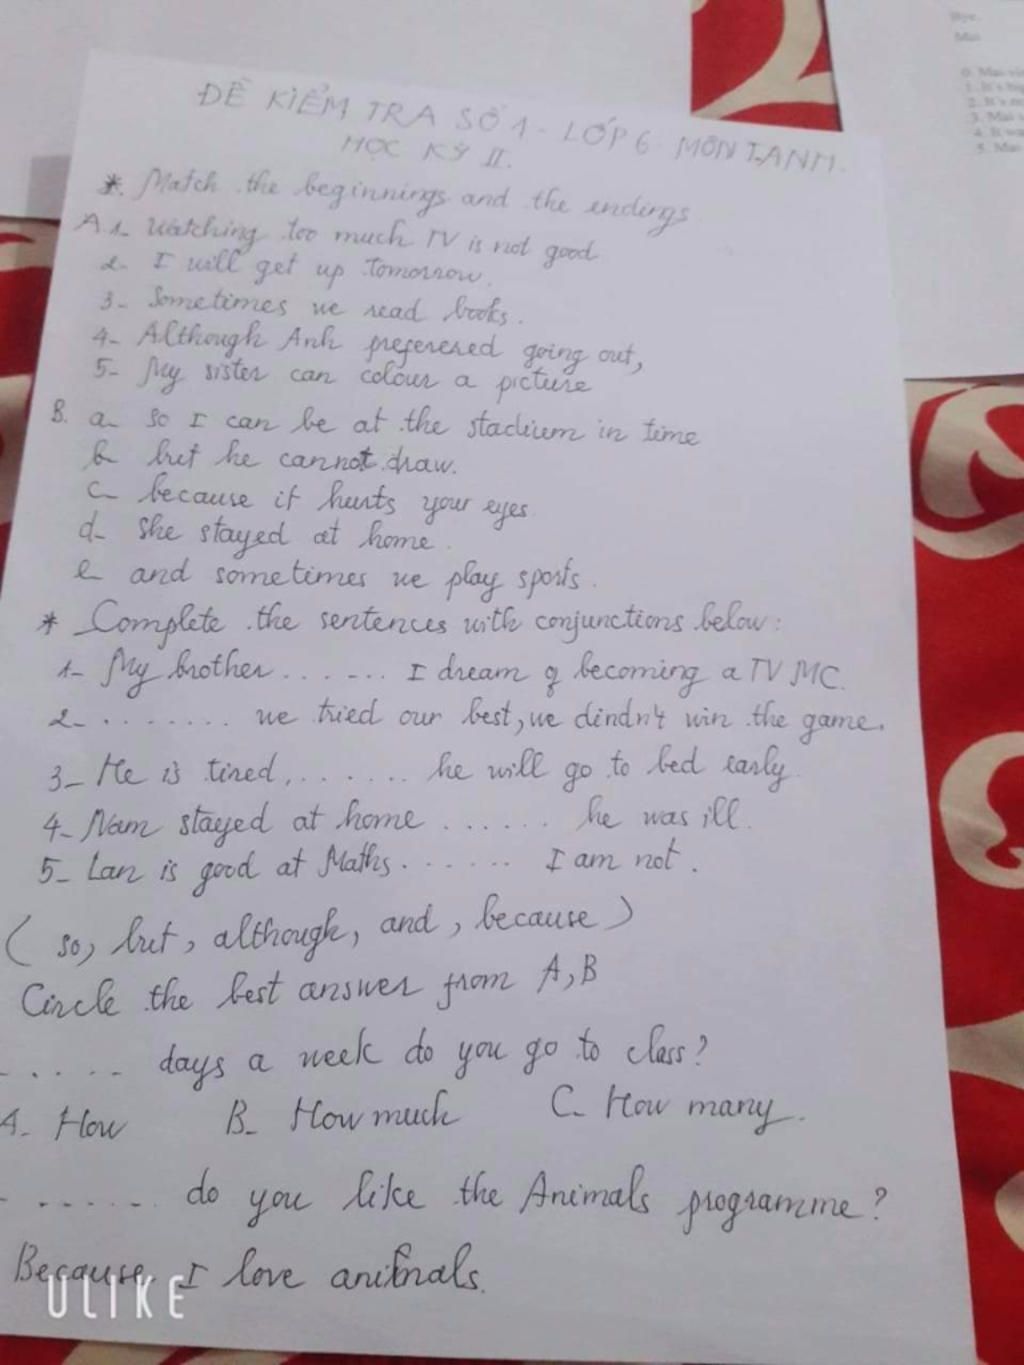 ĐỀ KIỂM TRA SỐ 1 - LỚP 6 MÔN T.ANH.
HỌC KỲ II.
* Match the beginnings and the endings
A.1- Watching too much TV is not good
2- I will get up tomorrow.
3- Sometimes we read books.
4- Although Anh preferered going out,
5- My sister can colour a picture
B. a- so I can be at the stadium in time
b- but he cannot draw.
c- because it hurts your eyes
d- she stayed at home.
e- and sometimes we play sports.
* Complete the sentences with conjunctions below:
1- My brother ....... I dream of becoming a TV MC.
2- ........ we tried our best, we dindn't win the game.
3- He is tired, ....... he will go to bed early
4- Nam stayed at home ...... he was ill.
5- Lan is good at Maths ...... I am not.
( so, but, although, and, because )
Circle the best answer from A, B
..... days a week do you go to class?
A- How B- How much C- How many.
....... do you like the Animals programme?
Because I love animals.
ULIKE
Bye.
Mai
0. Mai
1. It's
2. It's
3. Mai
4. It
5. Mai